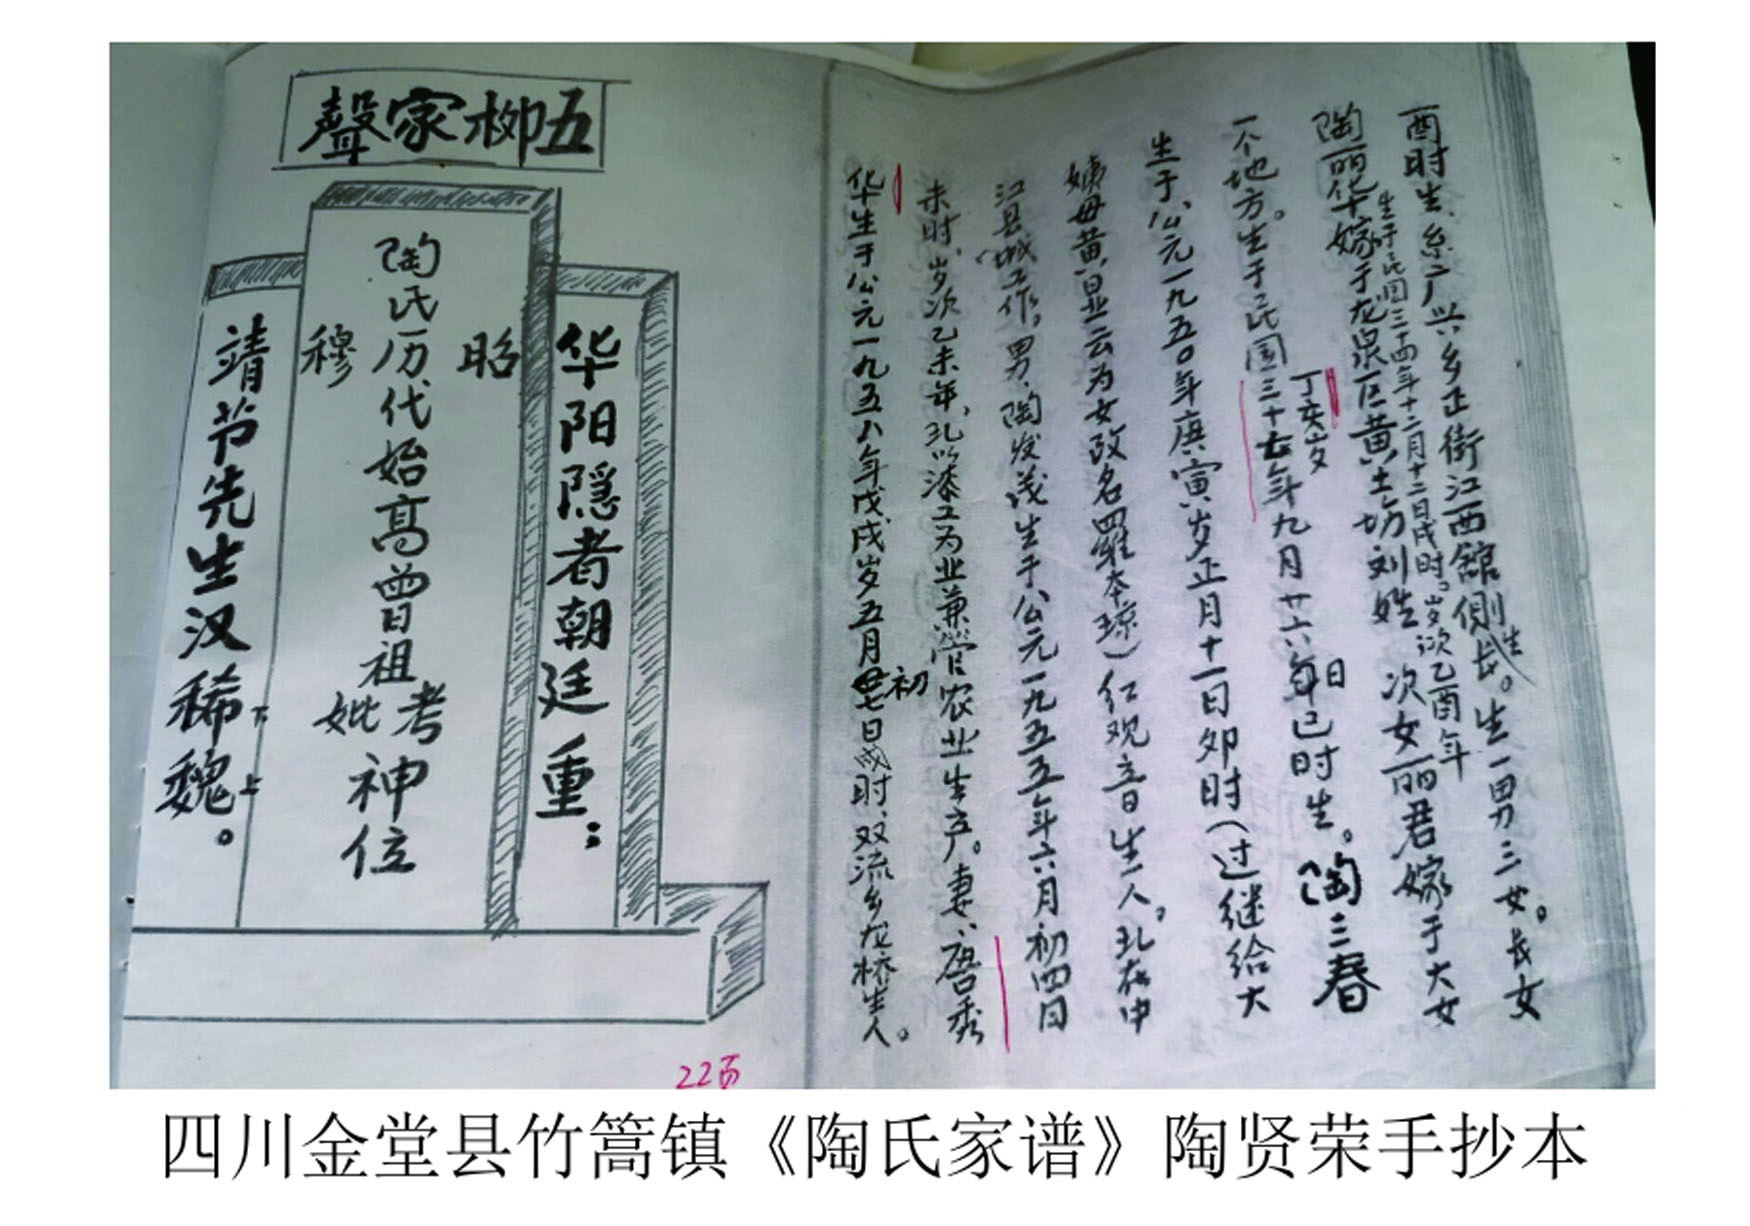 五柳家聲
华阳隐者朝廷重：
昭
陶氏历代始高曾祖考妣神位
穆
靖节先生汉稀魏。
下上
22页
酉时生系广兴乡正街江西舘側生长。生一男三女。长女
生于民国三十四年十二月十二日戌时。岁次乙酉年
陶丽华嫁于龙泉区黄土场刘姓 次女丽君嫁于大女
丁亥岁
一个地方。生于民国三十七年九月廿六日已时生。陶三春
生于公元一九五〇年庚寅岁正月十一日夘时（过继给大
姨母黄昱云为女改名羅本琼）红观音生人。现在中
江县城工作。男、陶发茂生于公元一九五五年六月初四日
未时、岁次乙未年、现以漆工为业兼营农业生产。妻、唐秀
华生于公元一九五八年戊戌岁五月初七日戌时、双流乡龙桥生人。
四川金堂县竹篙镇《陶氏家谱》陶贤荣手抄本